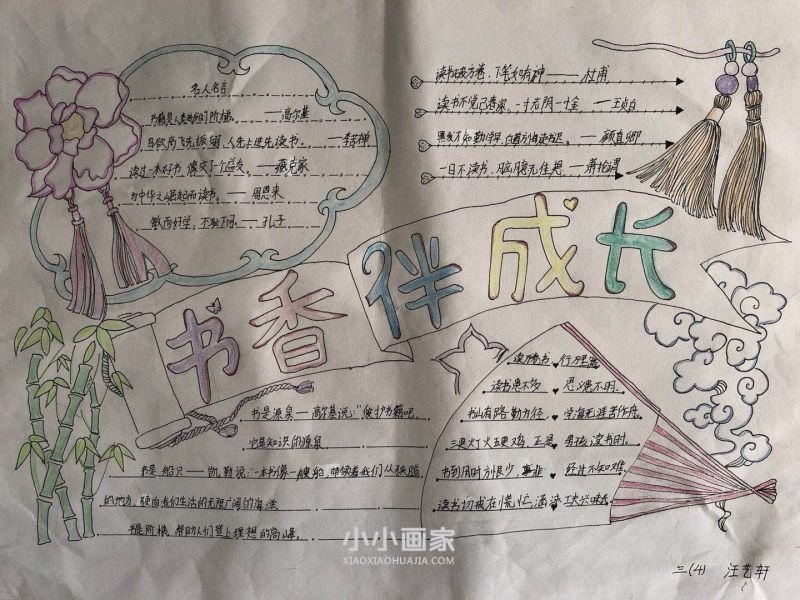 名人名言
书籍是人类进步的阶梯。——高尔基
鸟欲高飞先振翅,人先上进先读书。——李苦禅
读过一本好书,像交了一个益友。——臧克家
为中华之崛起而读书。——周恩来
敏而好学,不耻下问。——孔子
读书破万卷,下笔如有神——杜甫
读书不觉已春深,一寸光阴一寸金——王贞白
黑发不知勤学早,白首方悔读书迟。——颜真卿
一日不读书,胸臆无佳想。——萧抡谓
书香伴成长
书是源泉——高尔基说:"爱护书籍吧,
它是知识的源泉
书是船只——凯勒说:"一本书像一艘船,带领着我们从狭隘
的地方,驶向我们生活的无限广阔的海洋
书是阶梯,帮助人们登上理想的高峰。
读万卷书,行万里路
读书患不多,思义患不明。
书山有路勤为径,学海无涯苦作舟
三更灯火五更鸡,正是男孩读书时。
书到用时方恨少,事非经过不知难,
读书切戒在慌忙,涵泳工夫兴味长
小小画家
XIAOXIAOHUAJIA.COM
三(4) 汪艺轩